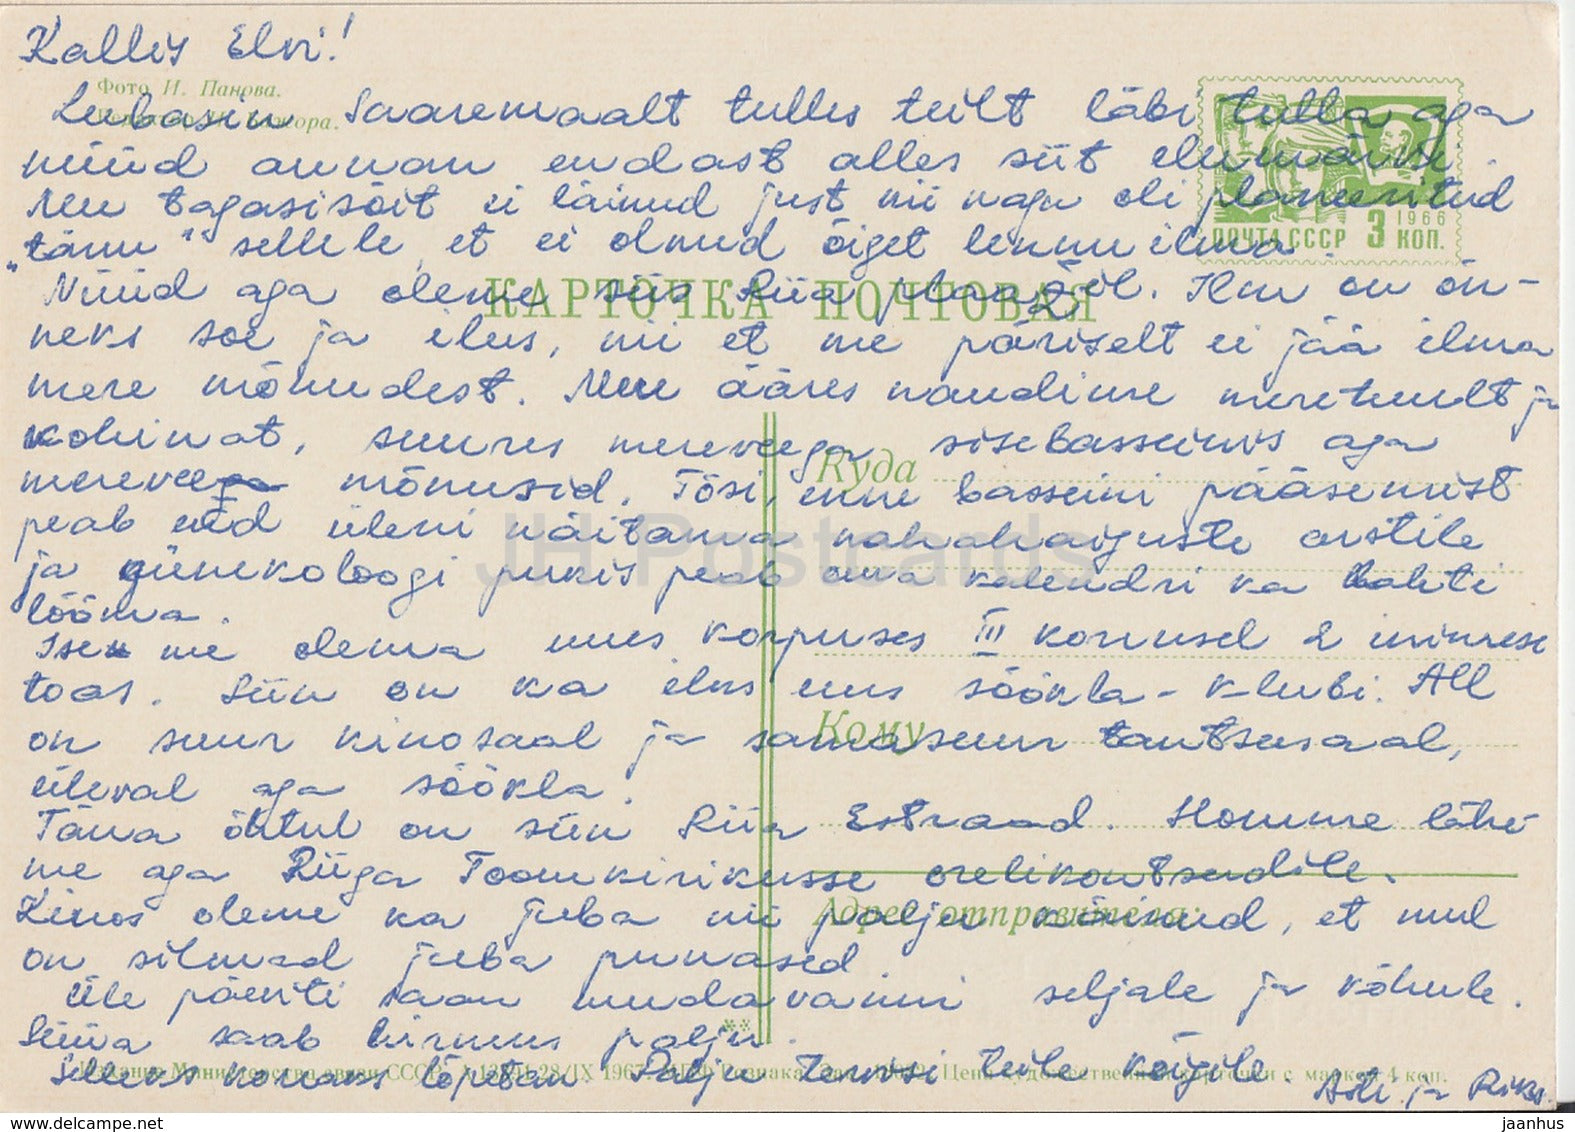 Kallis Elvi!
Фото И. Панова.
Lubasin Saaremaalt tulles teilt läbi tulla aga
нүүd annan endast alles siit elumärki.
Meie tagasisõit ei läinud just nii nagu oli planeeritud
"tänu" sellele, et ei olnud õiget lennuilma.
ПОЧТА СССР 3 КОП. 1966
КАРТОЧКА ПОЧТОВАЯ
Nüüd aga oleme siis Riia plaažil. Ilm on õn-
neks soe ja ilus, nii et me päriselt ei jää ilma
mere mõnudest. Mere ääres naudime meretuult ja
kohinat, suures mereveega sisebasseinis aga
merevee mõnusid. Tõsi, enne basseini pääsemist
peab end üleni näitama nahahaiguste arstile
ja günekoloogi juures peab oma kalendri ka lahti
lööma.
Ise me oleme uues korpuses III korrusel 2 inimese
toas. Siin on ka ilus uus söökla-klubi. All
on suur kinosaal ja samasuur tantsusaal,
üleval aga söökla.
Täna õhtul on siin Riia Estraad. Homme lähe-
me aga Riiga Toomkirikusse orelikontserdile.
Kinos oleme ka juba nii palju käinud, et mul
on silmad juba punased.
Üle päeviti saan mudavanni seljale ja kõhule.
Süüa saab hirmus palju.
Selleks korraks lõpetan. Palju tervisi teile kõigile. Asti ja Riks.
Куда
Кому
Адрес отправителя:
Издание Министерства связи СССР. 28/IX 1967. Цена художественной карточки с маркой 4 коп.
JH Postcards
www.hippostcard.com
jaanhus